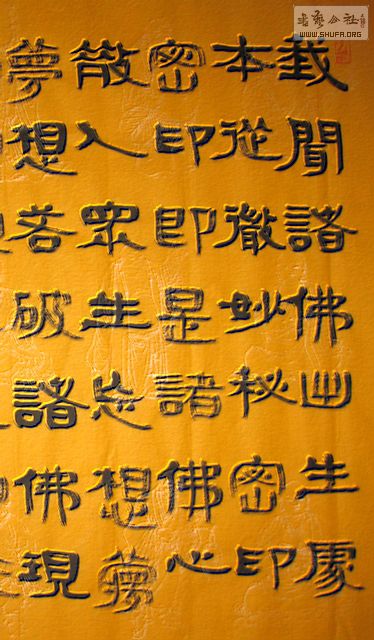 我聞諸佛出生處
本從微妙秘密印
密印即是諸佛心
散入眾生忘想夢
夢想若破諸佛現
书艺公社
WWW.SHUFA.ORG